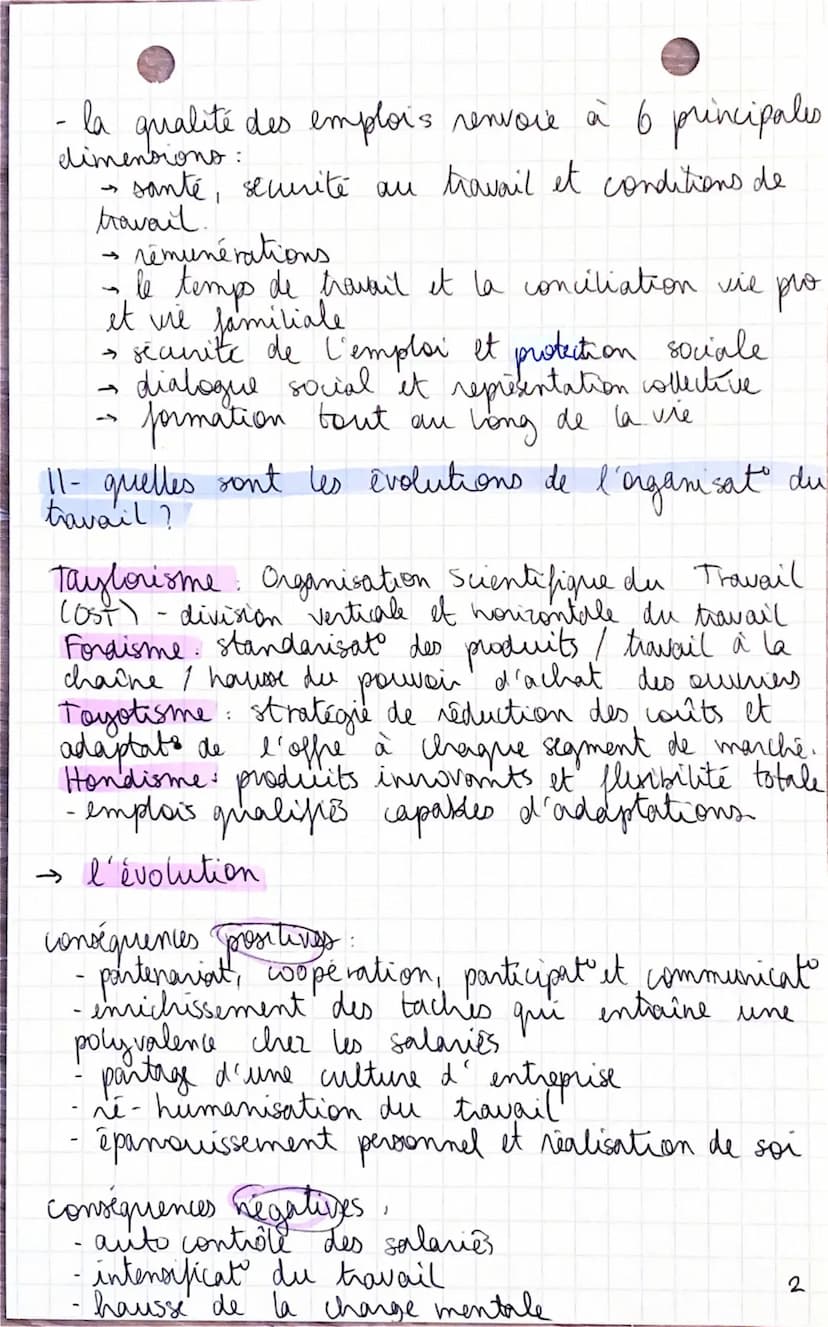 - la qualité des emplois renvoie à 6 principales
dimensions :
→ santé, sécurité au travail et conditions de
travail.
→ rémunérations
→ le temps de travail et la conciliation vie pro
et vie familiale
→ sécurité de l'emploi et protection sociale
→ dialogue social et représentation collective
→ formation tout au long de la vie
II- quelles sont les évolutions de l'organisat° du
travail ?
Taylorisme : Organisation Scientifique du Travail
(OST) - division verticale et horizontale du travail
Fordisme : standarisat° des produits / travail à la
chaîne / hausse du pouvoir d'achat des ouvriers
Toyotisme : stratégie de réduction des coûts et
adaptat° de l'offre à chaque segment de marché.
Hondisme : produits innovants et flexibilité totale
- emplois qualifiés capables d'adaptations
→ l'évolution
conséquences positives :
- partenariat, coopération, participat° et communicat°
- enrichissement des taches qui entraîne une
polyvalence chez les salariés
- partage d'une culture d'entreprise
- ré-humanisation du travail
- épanouissement personnel et réalisation de soi
conséquences négatives :
- auto contrôle des salariés
- intensificat° du travail
- hausse de la charge mentale
2